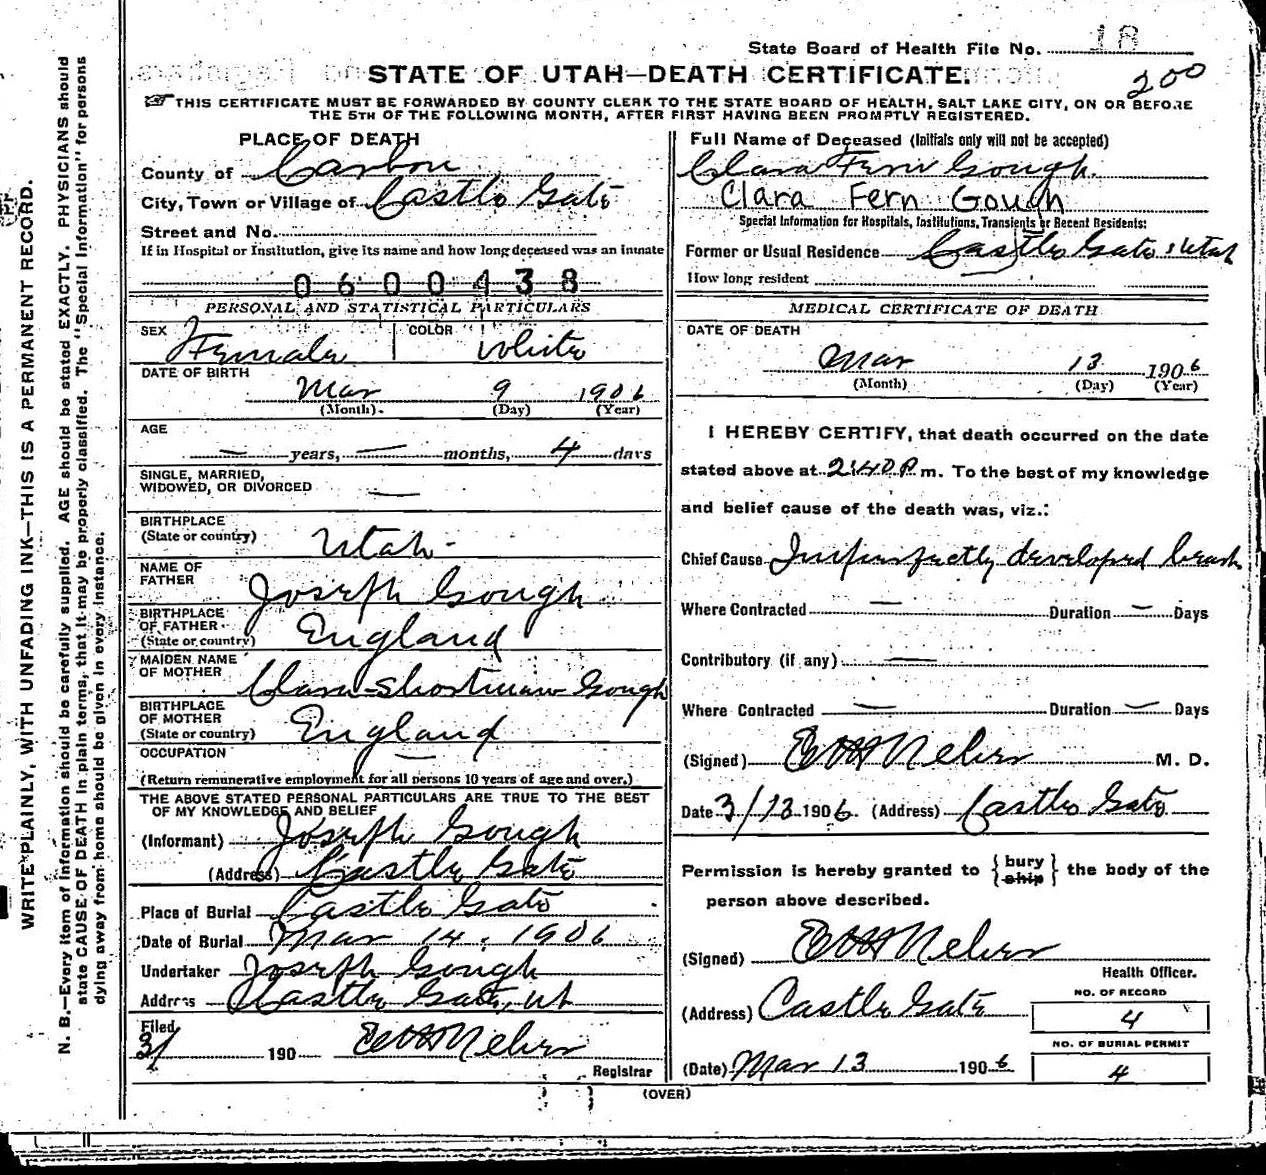 State Board of Health File No. 18
STATE OF UTAH—DEATH CERTIFICATE.
200
THIS CERTIFICATE MUST BE FORWARDED BY COUNTY CLERK TO THE STATE BOARD OF HEALTH, SALT LAKE CITY, ON OR BEFORE
THE 5TH OF THE FOLLOWING MONTH, AFTER FIRST HAVING BEEN PROMPTLY REGISTERED.
WRITE PLAINLY, WITH UNFADING INK—THIS IS A PERMANENT RECORD.
N. B.—Every item of information should be carefully supplied. AGE should be stated EXACTLY. PHYSICIANS should
state CAUSE OF DEATH in plain terms, that it may be properly classified. The "Special Information" for persons
dying away from home should be given in every instance.
PLACE OF DEATH
County of Carbon
City, Town or Village of Castle Gate
Street and No.
If in Hospital or Institution, give its name and how long deceased was an inmate
0600438
PERSONAL AND STATISTICAL PARTICULARS
SEX Female COLOR White
DATE OF BIRTH
Mar 9 1906
(Month) (Day) (Year)
AGE
— years, — months, 4 days
SINGLE, MARRIED,
WIDOWED, OR DIVORCED —
BIRTHPLACE
(State or country) Utah
NAME OF
FATHER Joseph Gough
BIRTHPLACE
OF FATHER
(State or country) England
MAIDEN NAME
OF MOTHER Clara Shortman Gough
BIRTHPLACE
OF MOTHER
(State or country) England
OCCUPATION —
(Return remunerative employment for all persons 10 years of age and over.)
THE ABOVE STATED PERSONAL PARTICULARS ARE TRUE TO THE BEST
OF MY KNOWLEDGE AND BELIEF
(Informant) Joseph Gough
(Address) Castle Gate
Place of Burial Castle Gate
Date of Burial Mar 14, 1906
Undertaker Joseph Gough
Address Castle Gate, Ut
Filed
3/ 190
Registrar
Full Name of Deceased (Initials only will not be accepted)
Clara Fern Gough
Clara Fern Gough
Special Information for Hospitals, Institutions, Transients or Recent Residents:
Former or Usual Residence Castle Gate, Utah
How long resident
MEDICAL CERTIFICATE OF DEATH
DATE OF DEATH
Mar 13 1906
(Month) (Day) (Year)
I HEREBY CERTIFY, that death occurred on the date
stated above at 2:40 P m. To the best of my knowledge
and belief cause of the death was, viz.:
Chief Cause Imperfectly developed
Where Contracted — Duration — Days
Contributory (if any) —
Where Contracted — Duration — Days
(Signed) M. D.
Date 3/13 1906. (Address) Castle Gate
Permission is hereby granted to { bury ship } the body of the
person above described.
(Signed)
Health Officer.
(Address) Castle Gate
NO. OF RECORD
4
NO. OF BURIAL PERMIT
4
(Date) Mar 13 1906
(OVER)